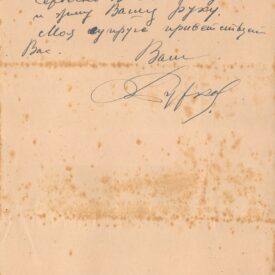 и жму Вашу руку.
Моя супруга приветствует
Вас.
Ваш